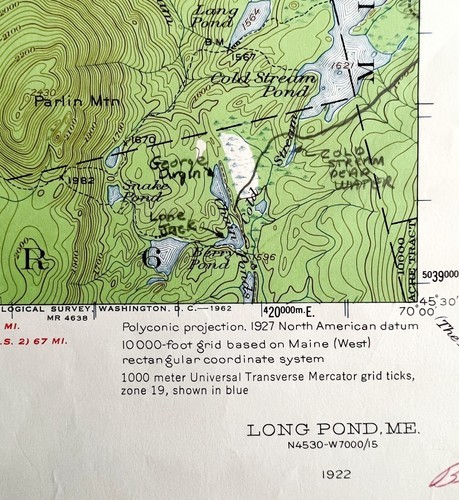 Long
Pond
1564
B M
1567
1621
Cold Stream
Pond
2430
Parlin Mtn
1670
George
COLD
STREAM
DEAD
WATER
1982
Snake
Pond
Lone
Jack
R
6
Berry
Pond
1596
10000
ACRE TRACT
LOGICAL SURVEY, WASHINGTON, D. C.—1962
MR 4638
420000m.E.
5039000
70°00'
45°30'
MI.
.S. 2) 67 MI.
(The
Polyconic projection. 1927 North American datum
10 000-foot grid based on Maine (West)
rectangular coordinate system
1000 meter Universal Transverse Mercator grid ticks,
zone 19, shown in blue
LONG POND, ME.
N4530-W7000/15
1922